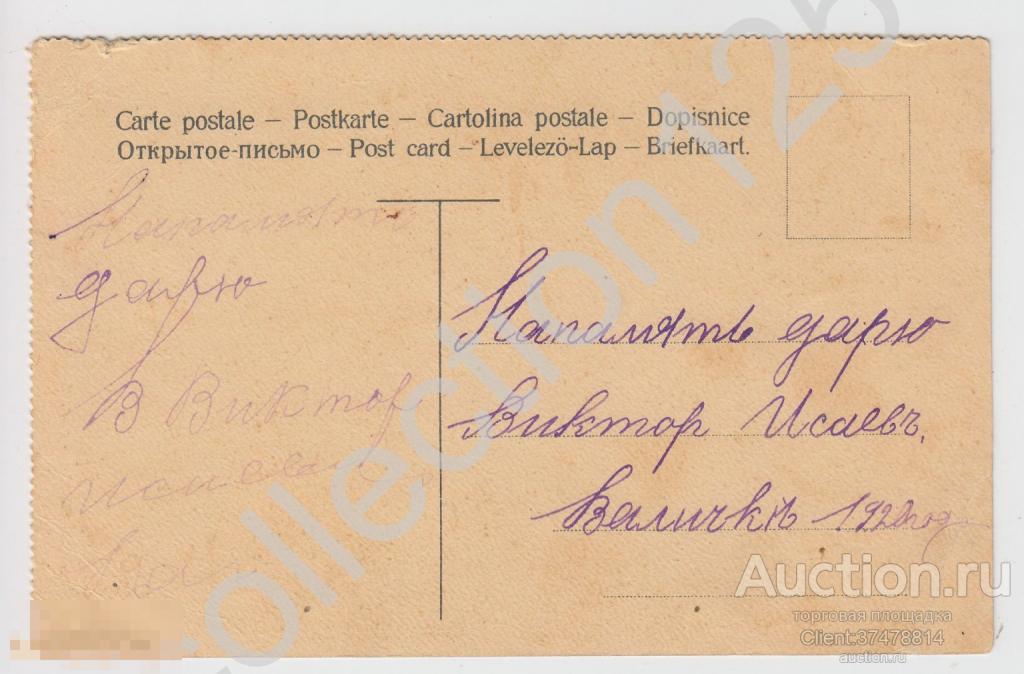 Carte postale – Postkarte – Cartolina postale – Dopisnice
Открытое-письмо – Post card – Levelezö-Lap – Briefkaart.
Напамять
дарю
В Виктор
Напамять дарю
Виктор Исаевъ.
Валичкѣ 192 год
collection 125
Auction.ru
торговая площадка
Client:37478814
auction.ru